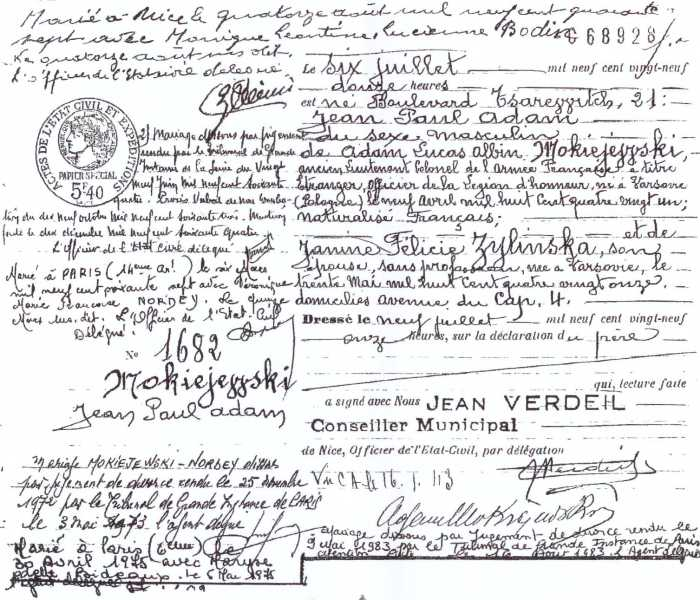 Marié à Nice le quatorze août mil neuf cent quarante
sept avec Monique Léontine Lucienne Bodin
Le quatorze août
L'Officier de l'Etat Civil délégué
G 68928
Le six juillet mil neuf cent vingt-neuf
douze heures
est né Boulevard Tsarewitch, 21:
Jean Paul Adam
du sexe masculin
de Adam Lucas Albin Mokiejewski,
ancien Lieutenant Colonel de l'Armée Française à titre
Etranger, officier de la Légion d'honneur, né à Varsovie
(Pologne) le neuf avril mil huit cent quatre vingt un;
naturalisé Français; et de
Janine Félicie Zylinska, son
épouse, sans profession, née à Varsovie, le
trente Mai mil huit cent quatre vingt onze,
domiciliés avenue du Cap, 4.
Dressé le neuf juillet mil neuf cent vingt-neuf
onze heures, sur la déclaration du père
qui, lecture faite
a signé avec Nous JEAN VERDEIL
Conseiller Municipal
de Nice, Officier de l'Etat-Civil, par délégation
ACTES DE L'ETAT CIVIL ET EXPÉDITIONS
PAPIER SPÉCIAL
5F40
Mariage dissous par jugement
rendu par le Tribunal de Grande
Instance de la Seine du Vingt
Neuf Juin mil neuf cent soixante
L'Officier de l'Etat Civil délégué
Marié à PARIS (14ème Arr.) le six Mars
mil neuf cent soixante sept avec Véronique
Marie Françoise NORDEY. Le quinze
Mars sus. dit. L'Officier de l'Etat. Civil
Délégué.
No 1682
Mokiejewski
Jean Paul Adam
Mariage MOKIEJEWSKI-NORDEY dissous
par jugement de divorce rendu le 25
1972 par le Tribunal de Grande Instance de PARIS
le 3 mai 1973 l'agent délégué
Marié à Paris (6ème) le
30 Avril 1975 avec Maryse
le 6 Mai 1975
Mariage dissous par Jugement de divorce rendu le
9 mai 1983 par le Tribunal de Grande Instance de Paris
1983